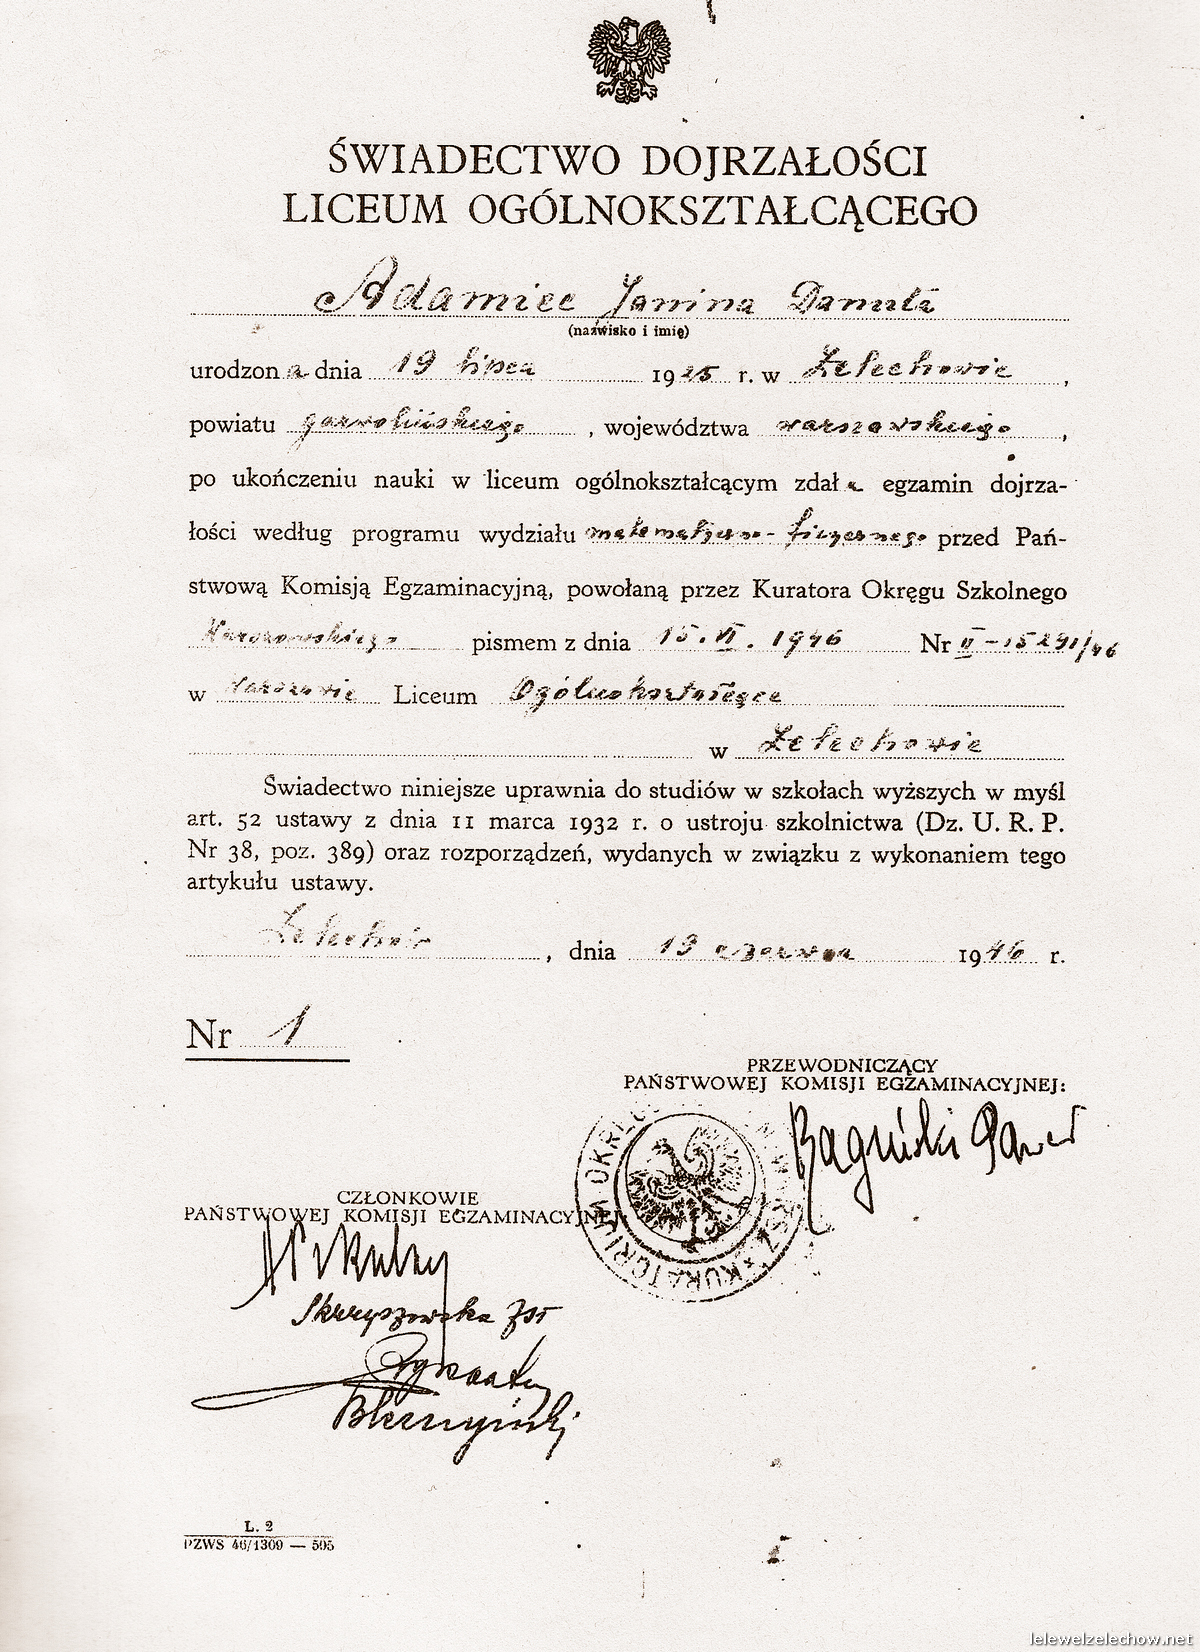 ŚWIADECTWO DOJRZAŁOŚCI
LICEUM OGÓLNOKSZTAŁCĄCEGO
Adamiec Janina Danuta
(nazwisko i imię)
urodzona dnia 19 lipca 1925 r. w Żelechowie,
powiatu garwolińskiego, województwa warszawskiego,
po ukończeniu nauki w liceum ogólnokształcącym zdała egzamin dojrza-
łości według programu wydziału matematyczno-fizycznego przed Pań-
stwową Komisją Egzaminacyjną, powołaną przez Kuratora Okręgu Szkolnego
Warszawskiego pismem z dnia 15.VI.1946 Nr II-15291/46
w Warszawie Liceum Ogólnokształcące
w Żelechowie
Świadectwo niniejsze uprawnia do studiów w szkołach wyższych w myśl
art. 52 ustawy z dnia 11 marca 1932 r. o ustroju szkolnictwa (Dz. U. R. P.
Nr 38, poz. 389) oraz rozporządzeń, wydanych w związku z wykonaniem tego
artykułu ustawy.
Żelechów, dnia 19 czerwca 1946 r.
Nr 1
PRZEWODNICZĄCY
PAŃSTWOWEJ KOMISJI EGZAMINACYJNEJ:
Bagiński Paweł
KURATORIUM OKRĘGU
CZŁONKOWIE
PAŃSTWOWEJ KOMISJI EGZAMINACYJNEJ:
Skrzyszewska
L. 2
PZWS 46/1309 — 505
lelewelzelechow.net